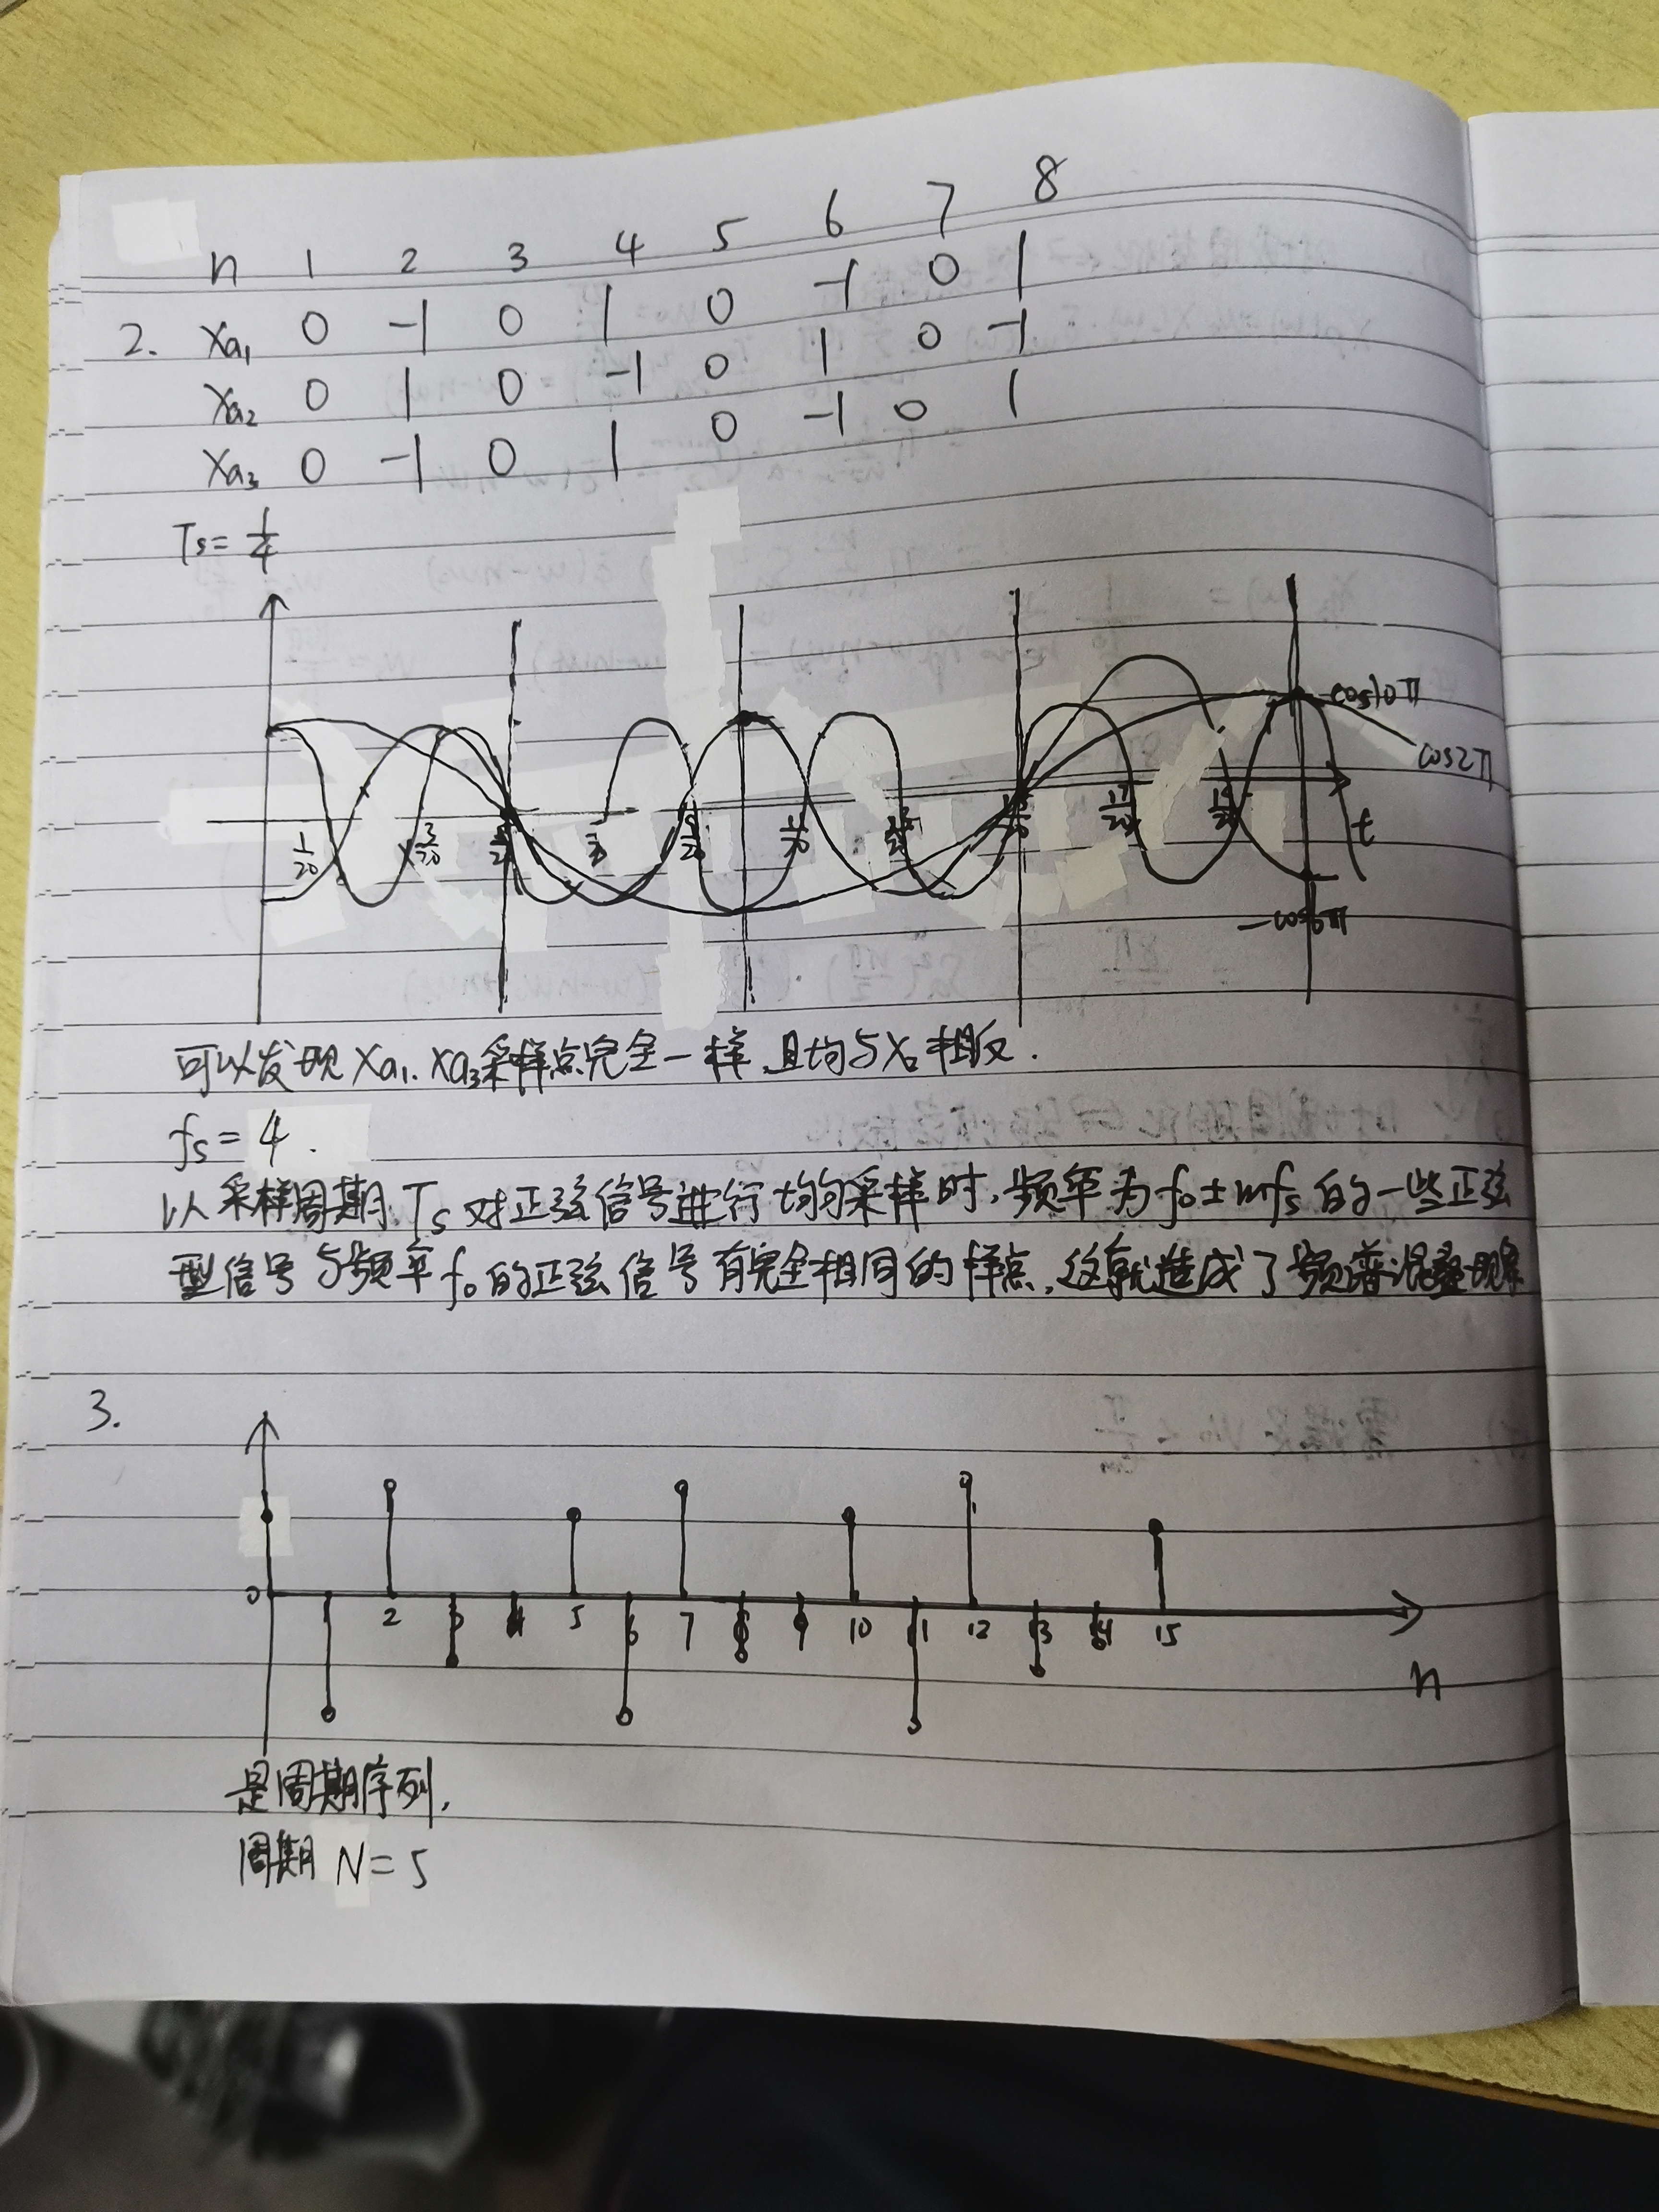 n 1 2 3 4 5 6 7 8
2. Xa₁ 0 -1 0 1 0 -1 0 1
Xa₂ 0 1 0 -1 0 1 0 -1
Xa₃ 0 -1 0 1 0 -1 0 1
Ts = 1/4
cos10π
cos2π
1/20 3/20 17/20 t
-cos6π
可以发现 Xa₁. Xa₃采样点完全一样,且均与X₂相反.
fs = 4.
以采样周期Ts对正弦信号进行均匀采样时,频率为f₀±mfs的一些正弦
型信号与频率f₀的正弦信号有完全相同的样点,这就造成了频谱混叠现象
3.
0 2 3 4 5 6 7 8 9 10 11 12 13 14 15
n
是周期序列,
周期 N=5